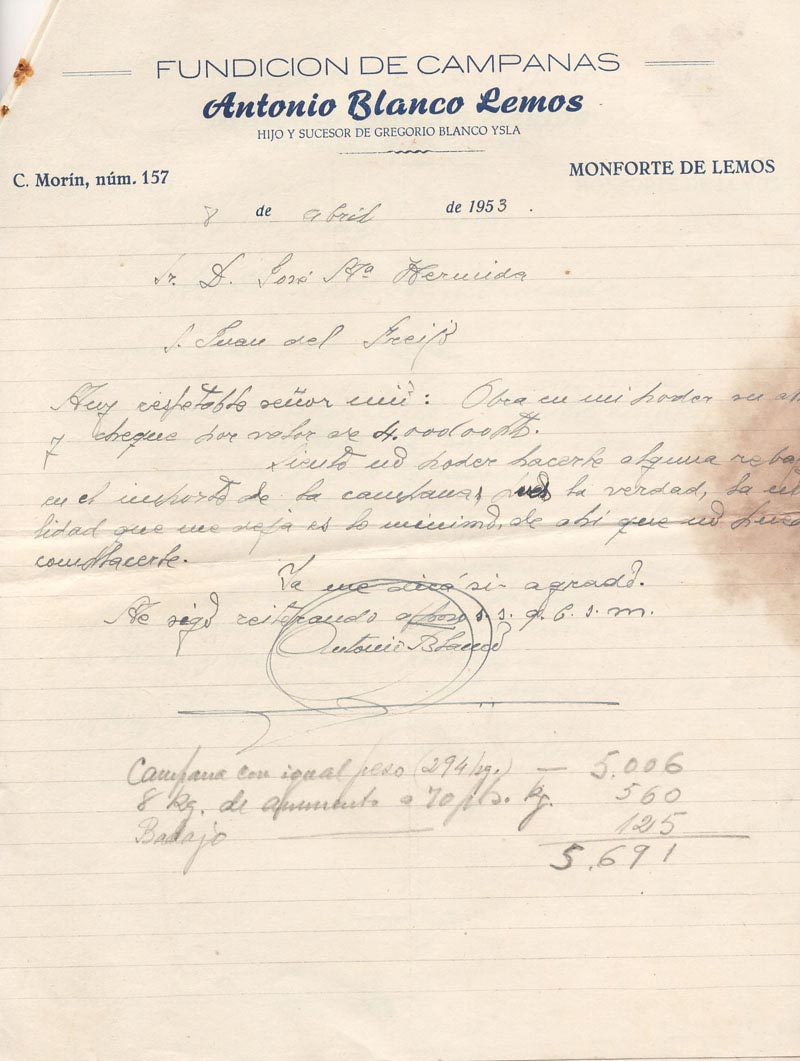 FUNDICION DE CAMPANAS
Antonio Blanco Lemos
HIJO Y SUCESOR DE GREGORIO BLANCO YSLA
C. Morín, núm. 157
MONFORTE DE LEMOS
8 de abril de 1953.
Sr. D. José Mª Hermida
S. Juan del Freijo
Muy respetable señor mio: Obra en mi poder su
y cheque por valor de 4.000'00 pts.
Siento no poder hacerle alguna reba
en el importe de la campana, la verdad, la uti
lidad que me deja es lo minimo, de ahi que no pueda
complacerle.
Ya me dirá si agradó.
Me sigo reiterando s. s. q. e. s. m.
Antonio Blanco
Campana con igual peso (294 kg.) — 5.006
8 kg. de aumento a 70 pts. kg. 560
Badajo 125
5.691